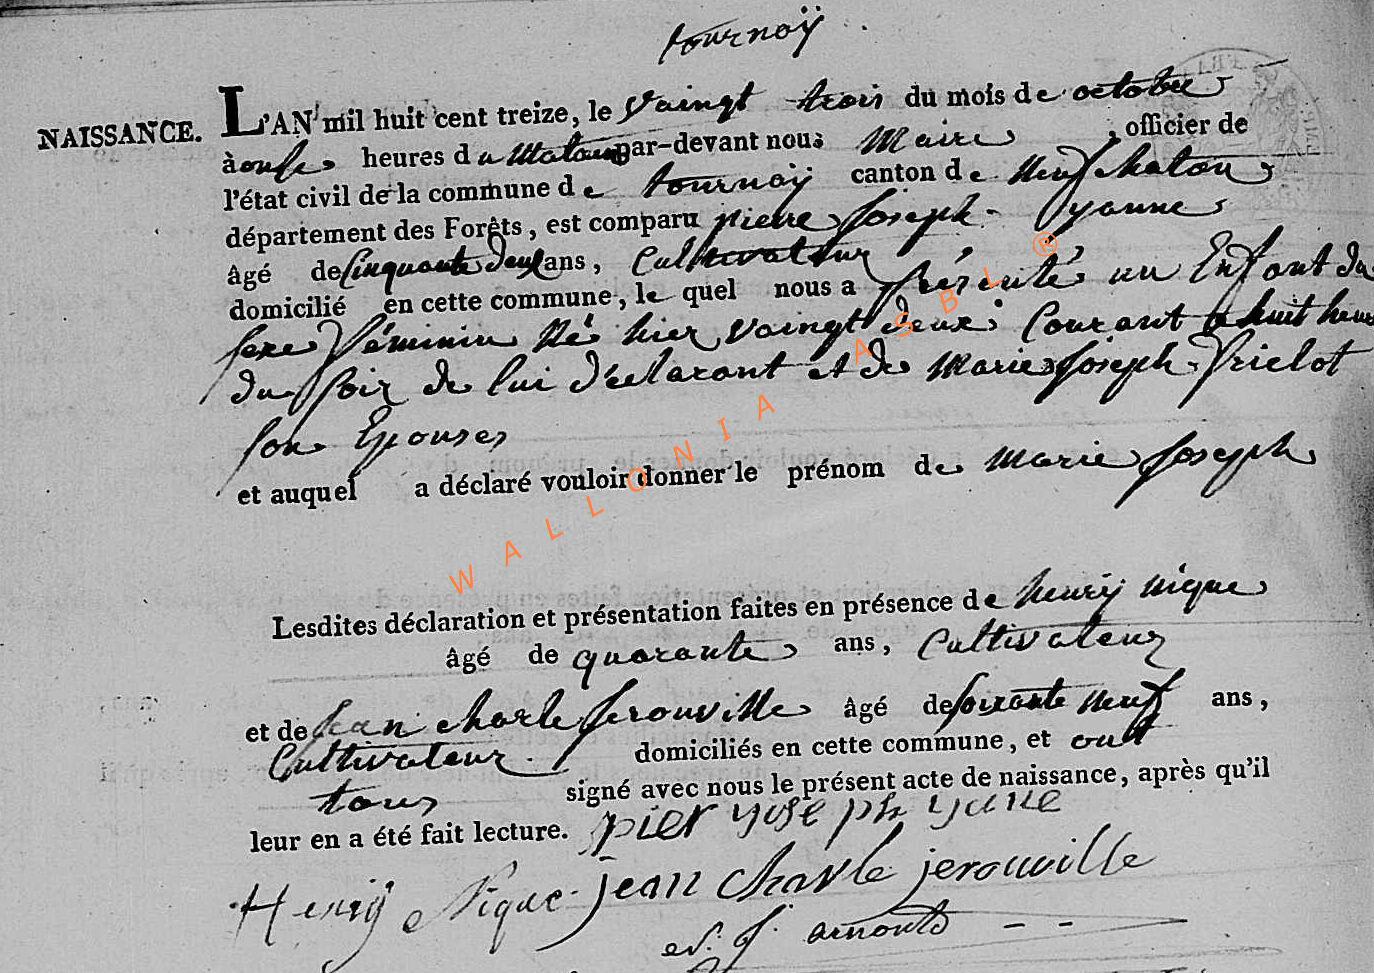 tournaÿ
NAISSANCE.
L'AN mil huit cent treize, le vaingt trois du mois de octobre
à onse heures du Matain par-devant nous Maire, officier de
l'état civil de la commune de tournaÿ canton de Neufchatau
département des Forêts, est comparu pierre Joseph yanne
âgé de Cinquante deux ans, Cultivateur
domicilié en cette commune, lequel nous a présenté un Enfant du
sexe Féminin Né hier vaingt deux Courant a huit heure
du soir de lui déclarant et de Marie Joseph frielot
son Epouse
et auquel a déclaré vouloir donner le prénom de Marie Joseph
Lesdites déclaration et présentation faites en présence de henrÿ nique
âgé de quarante ans, Cultivateur
et de Jean charle Jerouville âgé de soixante neuf ans,
Cultivateur domiciliés en cette commune, et ont
tous signé avec nous le présent acte de naissance, après qu'il
leur en a été fait lecture. pier yose ph yane
Henrÿ Nique jean charle jerouville
J. arnould
WALLONIA ASBL ®